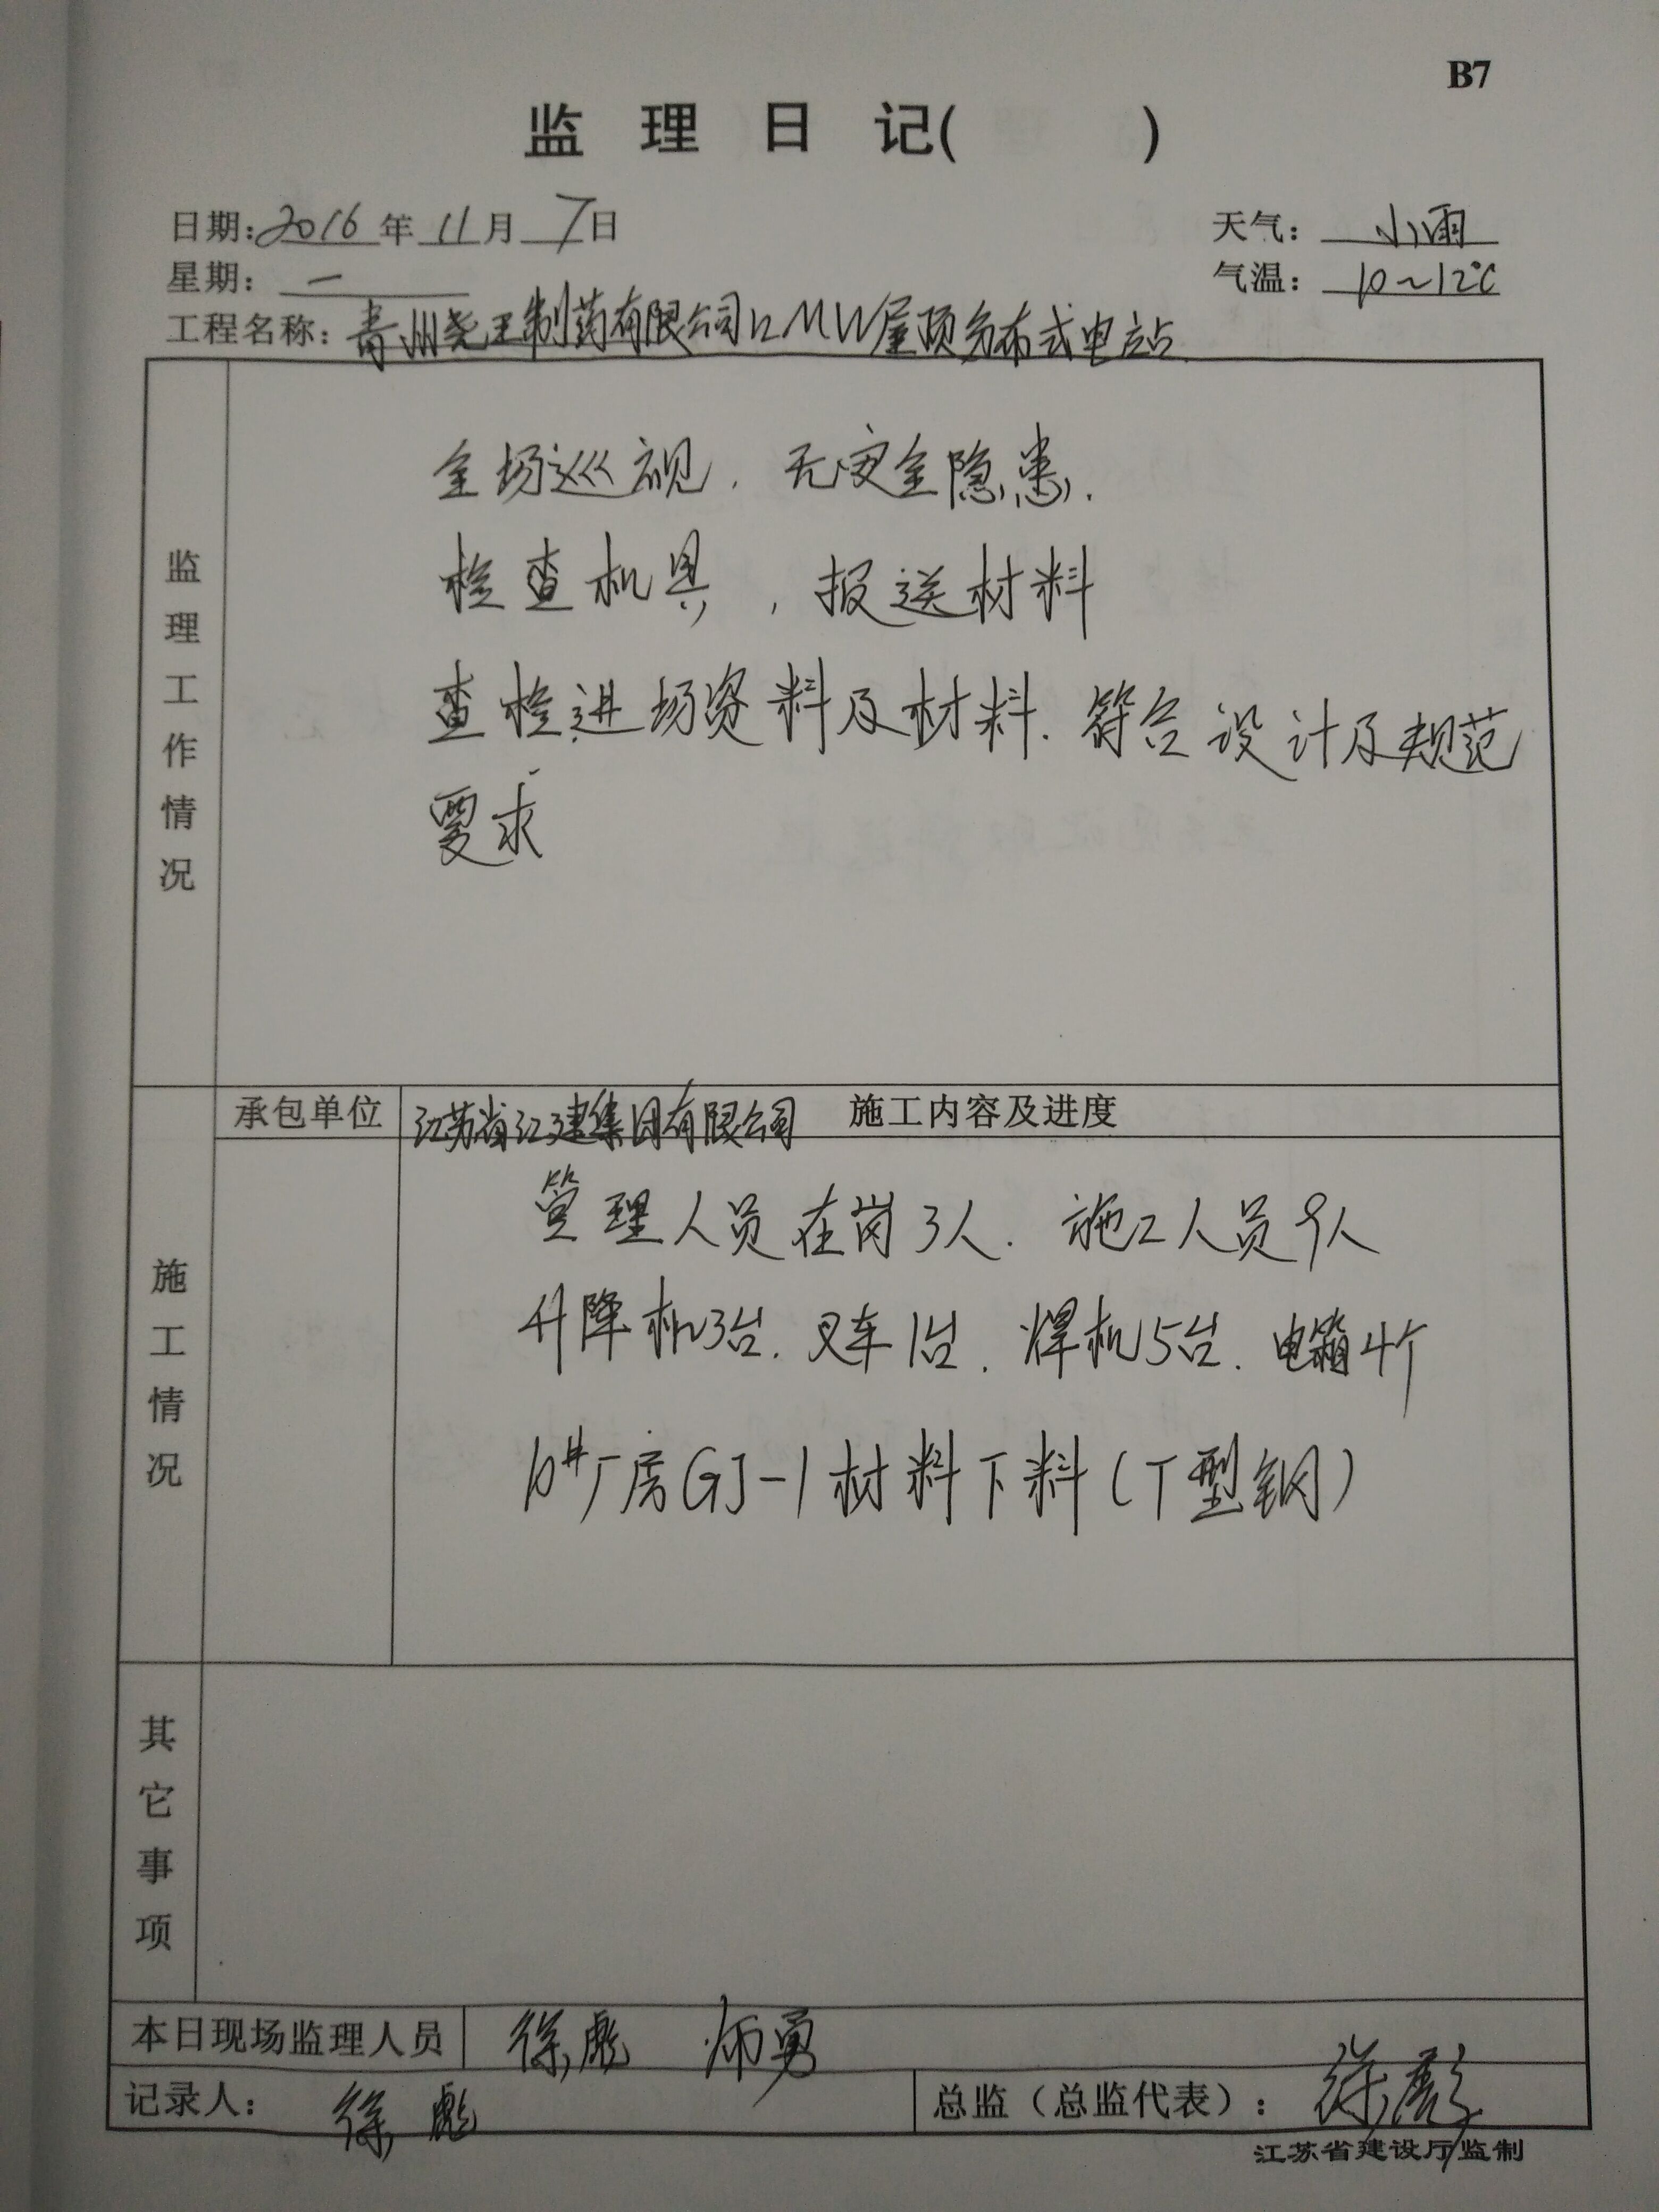 B7
监 理 日 记( )
日期: 2016 年 11 月 7 日 天气: 小雨
星期: 一 气温: 10~12℃
工程名称: 青州尧王制药有限公司 MW屋顶分布式电站
监理工作情况
全场巡视, 无安全隐患.
检查机具, 报送材料
查检进场资料及材料. 符合设计及规范
要求
承包单位 江苏省江建集团有限公司 施工内容及进度
施工情况
管理人员在岗3人. 施工人员9人
升降机3台. 叉车1台. 焊机5台. 电箱4个
10#厂房GJ-1材料下料(T型钢)
其它事项
本日现场监理人员 徐彪 师勇
记录人: 徐彪 总监(总监代表): 徐彪
江苏省建设厅监制